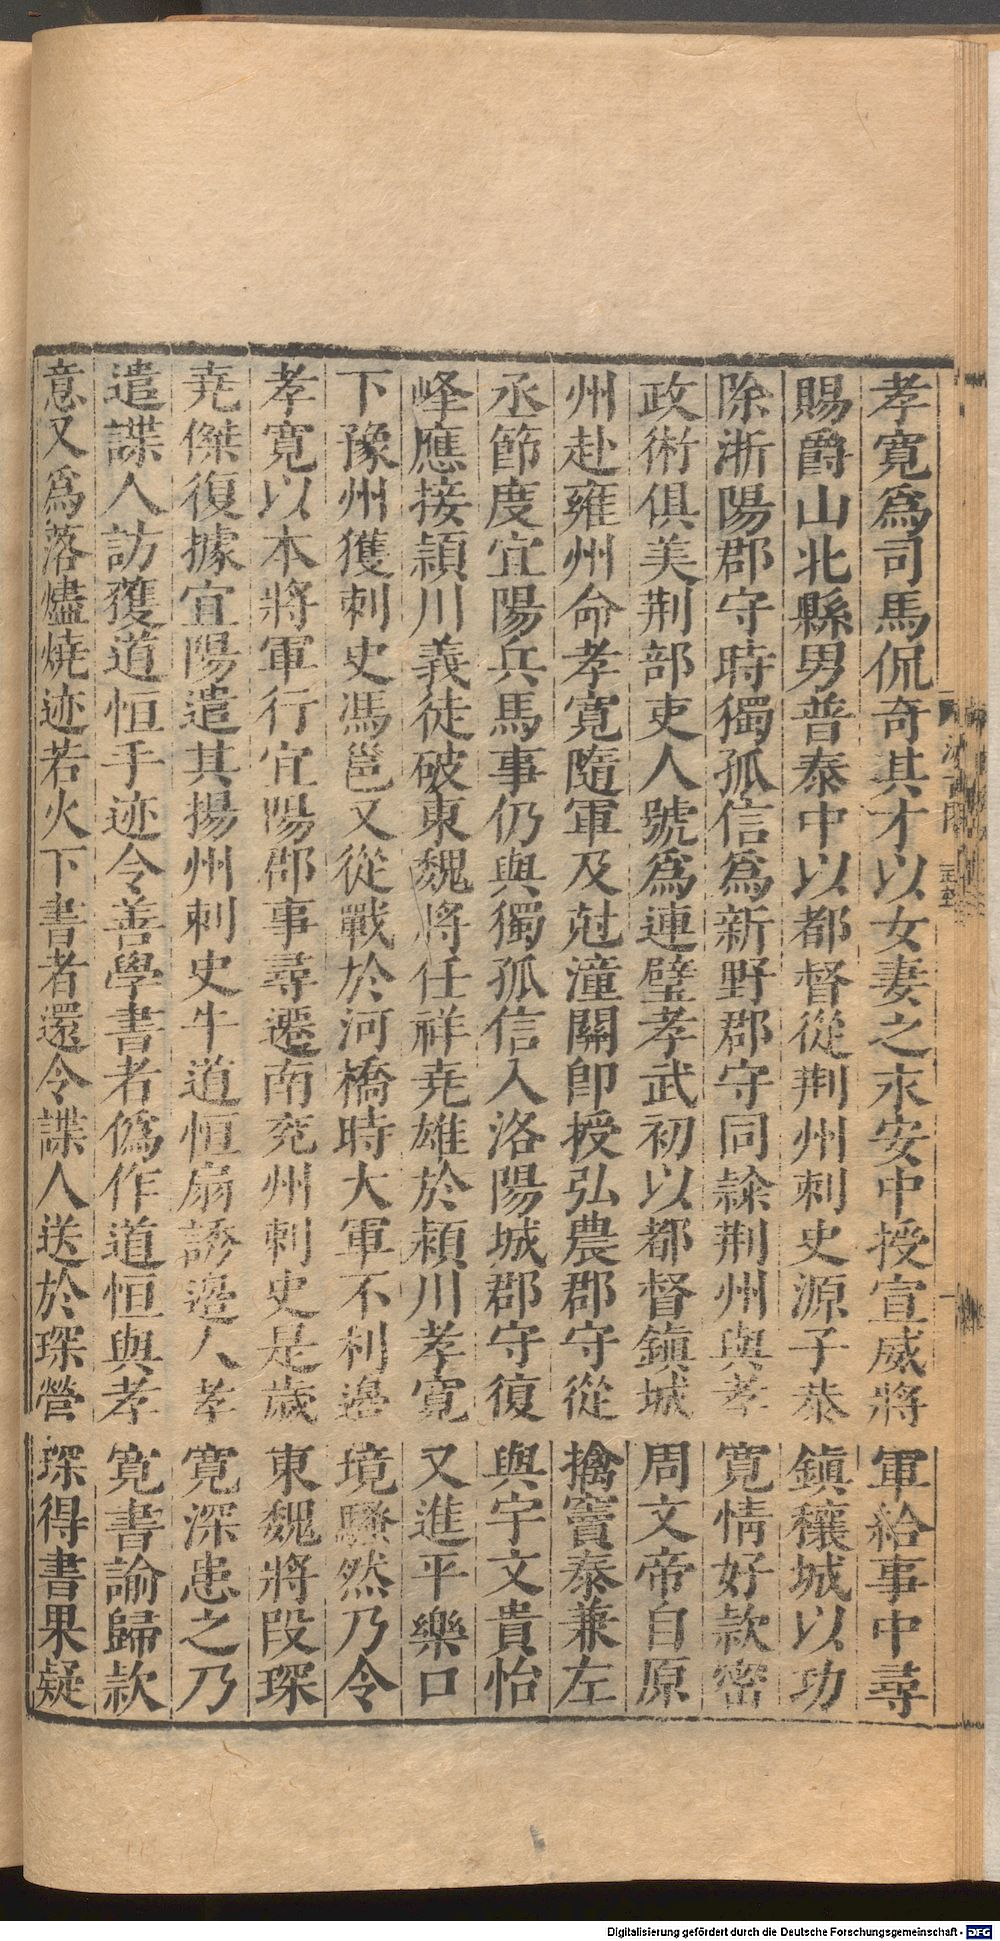 孝寛爲司馬侃奇其才以女妻之永安中授宣威將軍給事中尋
賜爵山北縣男普泰中以都督從荆州刺史源子恭鎮穰城以功
除淅陽郡守時獨孤信爲新野郡守同隸荆州與孝寛情好款密
政術俱美荆部吏人號爲連璧孝武初以都督鎮城周文帝自原
州赴雍州命孝寛隨軍及尅潼關卽授弘農郡守從擒竇泰兼左
丞節度宜陽兵馬事仍與獨孤信入洛陽城郡守復與宇文貴怡
峰應接穎川義徒破東魏將任祥尭雄於穎川孝寛又進平樂口
下豫州獲刺史馮邕又從戰於河橋時大軍不利邊境騷然乃令
孝寛以本將軍行宜陽郡事尋遷南兖州刺史是歲東魏將段琛
尭傑復據宜陽遣其揚州刺史牛道恒扇誘邉人孝寛深患之乃
遣諜人訪獲道恒手迹令善學書者僞作道恒與孝寛書諭歸款
意又爲落燼燒迹若火下書者還令諜人送於琛營琛得書果疑
Digitalisierung gefördert durch die Deutsche Forschungsgemeinschaft - DFG